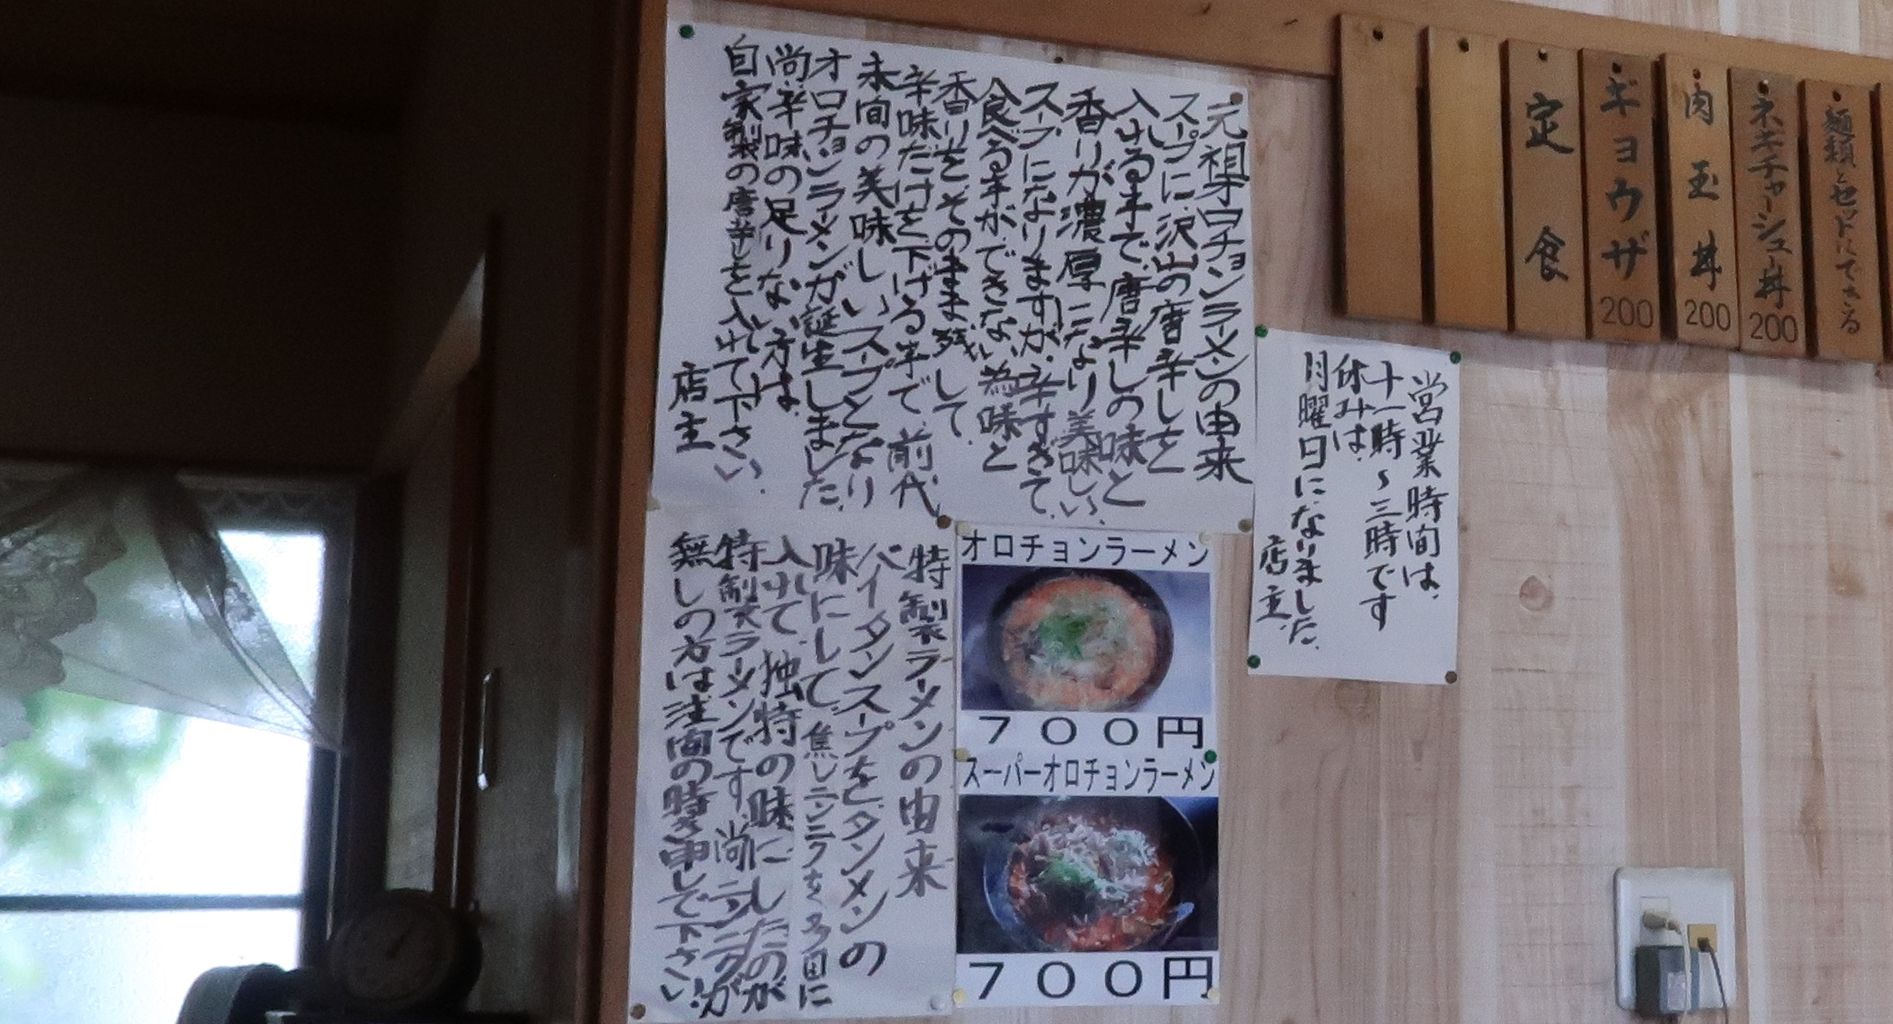 元祖オロチョンラーメンの由来
スープに沢山の唐辛しを
入れる事で、唐辛しの味と
香りが濃厚になり美味しい、
スープになりますが、辛すぎて、
食べる事ができない為味と
香りをそのまま残して、
辛味だけを下げる事で、前代
未間の美味しいスープとなり
オロチョンラーメンが誕生しました、
尚、辛味の足りない方は、
自家製の唐辛しを入れて下さい、
店主
特製ラーメンの由来
パイタンスープをタンメンの
味にして、焦しニンニクを多目に
入れて、独特の味にしたのが
特製ラーメンです、尚ニンニクが
無しの方は注間の時に申して下さい、
オロチョンラーメン
700円
スーパーオロチョンラーメン
700円
営業時間は、
十一時〜三時です
休みは、
月曜日になりました、
店主、
麺類とセットにできる
ネギチャーシュー丼
200
肉玉丼
200
ギョウザ
200
定食